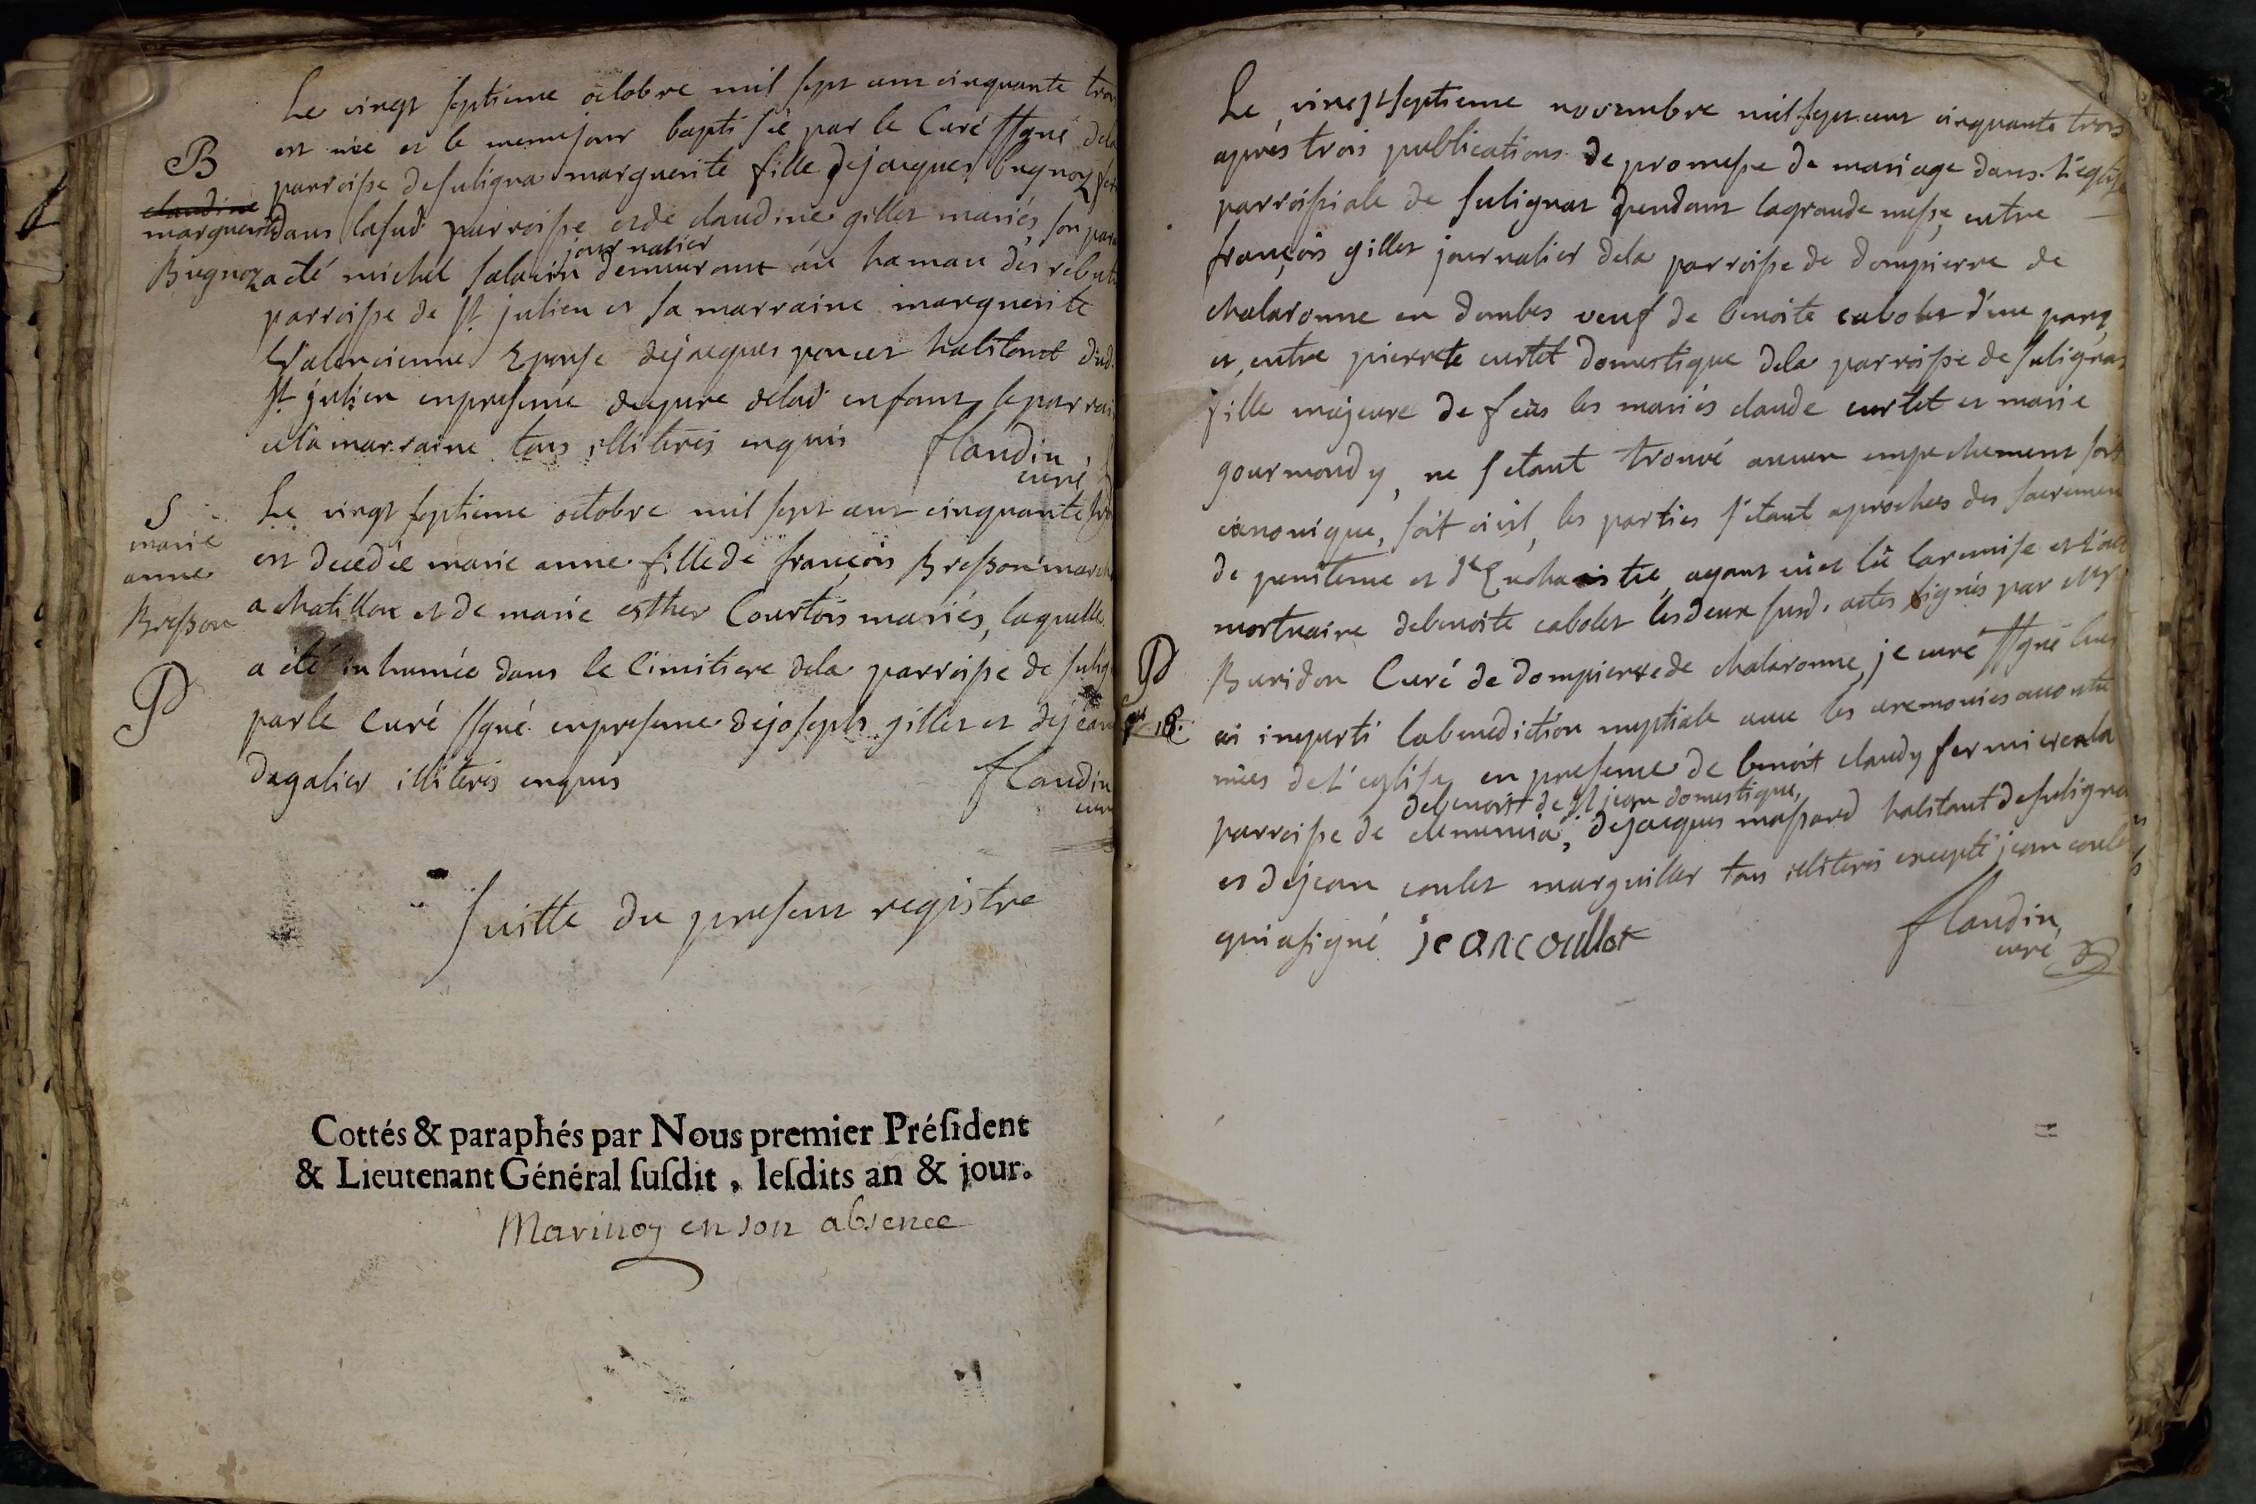 Le vingt septieme octobre mil sept cent cinquante trois
est née et le meme jour baptisée par le Curé ssgné dela
B
parroisse de suligna marguerite fille de jacques bugnoz
claudine
marguerite
dans lasud parroisse et de claudine gillet mariés, son parain
journalier
Bugnoz
a été michel salacin demeurant au hamau des
parroisse de st julien et sa marraine marguerite
Valencienne Epouse de jacques poncet habitant dud.
st julien en presence du pere delad enfant, le parrain
et la marraine tous illiterés enquis flandin
curé
S
marie
anne
Bresson
Le vingt septieme octobre mil sept cent cinquante trois
est decedée marie anne fille de françois Bresson marchand
a chatillon et de marie esther Courtois mariés, laquelle
a été inhumée dans le cimitiere dela parroisse de
P
par le curé ssgné en presence de joseph gillet et de jean
dagalier illiterés enquis flandin
curé
suitte du present registre
Cottés & paraphés par Nous premier Préſident
& Lieutenant Général ſuſdit, leſdits an & jour.
Marinoz en son absence
Le vingt septieme novembre mil sept cent cinquante trois
apres trois publications de promesse de mariage dans l'eglise
parroissiale de sulignat pendant la grande messe, entre
françois gillet journalier dela parroisse de dompierre de
chalaronne en dombes veuf de benoite cabolet d'une part,
et, entre pierrete curtet domestique dela parroisse de sulignat
fille majeure de feus les mariés claude curtet et marie
gourmondy, ne s'etant trouvé aucun empechement soit
canonique, soit civil, les parties s'etant aprochées des sacremens
de penitence et de Eucharistie, ayant vû et lû la remise et l'acte
mortuaire de benoite cabolet les deux susd. actes signés par Mr
P
Buridon Curé de dompierre de chalaronne, je curé ssgné leur
18.
ai imparti la benediction nuptiale avec les ceremonies accoutu
mées de l'eglise, en presence de benoit claudy fermier en la
de benoit de st jean domestique,
parroisse de clemencia, de jacques massard habitant de suligna
et de jean coulet marguiller tous illiterés excepté jean coulet
qui a signé jean coullot flandin
curé